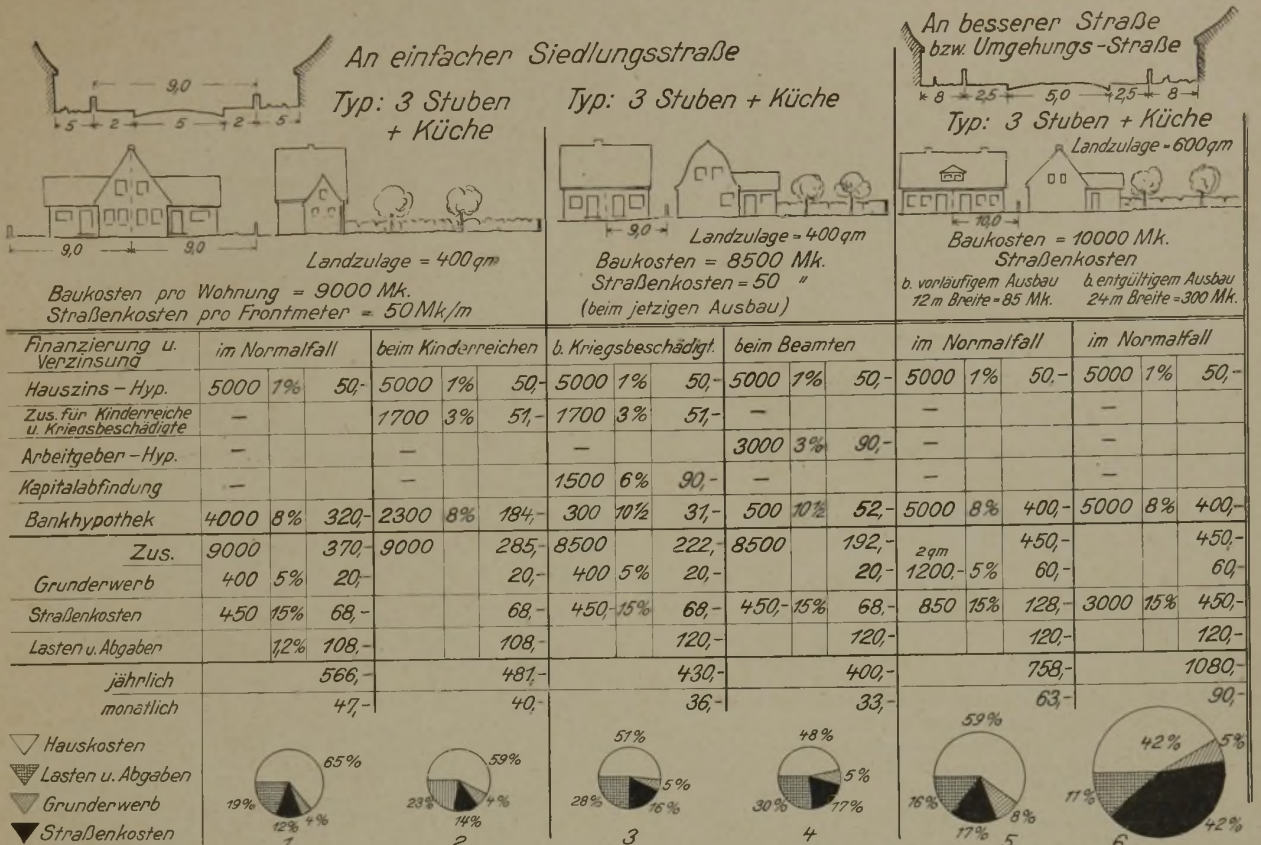 An einfacher Siedlungsstraße
9,0
5 2 5 2 5
Typ: 3 Stuben
+ Küche
9,0 9,0
Landzulage = 400 qm
Baukosten pro Wohnung = 9000 Mk.
Straßenkosten pro Frontmeter = 50 Mk/m
Typ: 3 Stuben + Küche
9,0
Landzulage = 400 qm
Baukosten = 8500 Mk.
Straßenkosten = 50 "
(beim jetzigen Ausbau)
An besserer Straße
bzw. Umgehungs-Straße
8 2,5 5,0 2,5 8
Typ: 3 Stuben + Küche
Landzulage = 600 qm
10,0
Baukosten = 10000 Mk.
Straßenkosten
b. vorläufigem Ausbau b. entgültigem Ausbau
12 m Breite = 85 Mk. 24 m Breite = 300 Mk.
Finanzierung u. Verzinsung im Normalfall beim Kinderreichen b. Kriegsbeschädigt. beim Beamten im Normalfall im Normalfall
Hauszins - Hyp. 5000 1% 50,- 5000 1% 50,- 5000 1% 50,- 5000 1% 50,- 5000 1% 50,- 5000 1% 50,-
Zus. für Kinderreiche u. Kriegsbeschädigte — 1700 3% 51,- 1700 3% 51,- — — —
Arbeitgeber - Hyp. — — — 3000 3% 90,- — —
Kapitalabfindung — — 1500 6% 90,- — —
Bankhypothek 4000 8% 320,- 2300 8% 184,- 300 10½ 31,- 500 10½ 52,- 5000 8% 400,- 5000 8% 400,-
Zus. 9000 370,- 9000 285,- 8500 222,- 8500 192,- 450,- 450,-
Grunderwerb 400 5% 20,- 20,- 400 5% 20,- 20,- 2qm 1200,- 5% 60,- 60,-
Straßenkosten 450 15% 68,- 68,- 450,- 15% 68,- 450,- 15% 68,- 850 15% 128,- 3000 15% 450,-
Lasten u. Abgaben 1,2% 108,- 108,- 120,- 120,- 120,- 120,-
jährlich 566,- 481,- 430,- 400,- 758,- 1080,-
monatlich 47,- 40,- 36,- 33,- 63,- 90,-
Hauskosten
Lasten u. Abgaben
Grunderwerb
Straßenkosten
65% 19% 12% 4%
1
59% 23% 14% 4%
2
51% 28% 16% 5%
3
48% 30% 17% 5%
4
59% 16% 17% 8%
5
42% 11% 42% 5%
6